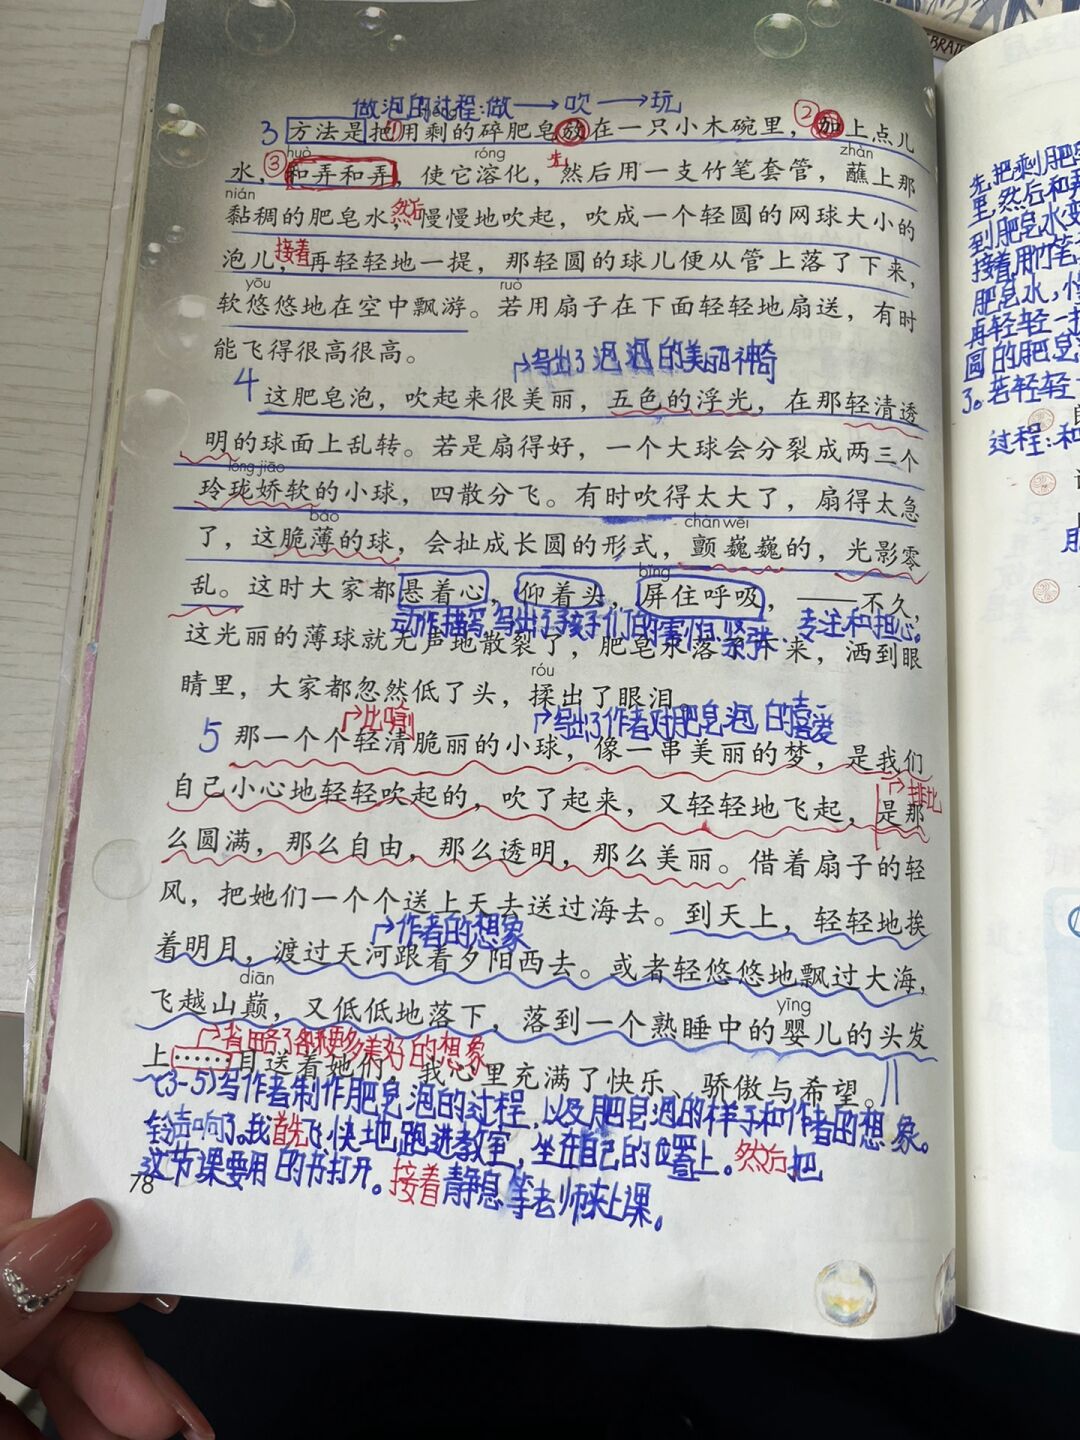 BRATE
做泡的过程:做→吹→玩
3 方法是把①用剩的碎肥皂放在一只小木碗里,②加上点儿
huò róng zhàn
水,③和弄和弄,使它溶化,先然后用一支竹笔套管,蘸上那
nián
黏稠的肥皂水,然后慢慢地吹起,吹成一个轻圆的网球大小的
泡儿,接着再轻轻地一提,那轻圆的球儿便从管上落了下来,
yōu ruò
软悠悠地在空中飘游。若用扇子在下面轻轻地扇送,有时
能飞得很高很高。
→写出了泡泡的美丽神奇
4 这肥皂泡,吹起来很美丽,五色的浮光,在那轻清透
明的球面上乱转。若是扇得好,一个大球会分裂成两三个
lóng jiāo
玲珑娇软的小球,四散分飞。有时吹得太大了,扇得太急
báo chàn wēi
了,这脆薄的球,会扯成长圆的形式,颤巍巍的,光影零
bǐng
乱。这时大家都悬着心,仰着头,屏住呼吸,——不久,
动作描写,写出了孩子们的害怕、紧张、专注和担心。
这光丽的薄球就无声地散裂了,肥皂水落了下来,洒到眼
róu
睛里,大家都忽然低了头,揉出了眼泪。
→比喻 →写出了作者对肥皂泡的喜爱
5 那一个个轻清脆丽的小球,像一串美丽的梦,是我们
→排比
自己小心地轻轻吹起的,吹了起来,又轻轻地飞起,是那
么圆满,那么自由,那么透明,那么美丽。借着扇子的轻
风,把她们一个个送上天去送过海去。到天上,轻轻地挨
→作者的想象
着明月,渡过天河跟着夕阳西去。或者轻悠悠地飘过大海,
diān yīng
飞越山巅,又低低地落下,落到一个熟睡中的婴儿的头发
→省略了很多美好的想象
上……目送着她们,我心里充满了快乐、骄傲与希望。
(3-5)写作者制作肥皂泡的过程,以及肥皂泡的样子和作者的想象。
铃声响了。我首先飞快地跑进教室,坐在自己的位置上。然后把
这节课要用的书打开。接着静息等老师来上课。
78
先把剩肥皂
里,然后和弄
到肥皂水变
接着用竹笔
肥皂水,慢
再轻轻一提
圆的肥皂
了。若轻轻
过程:和